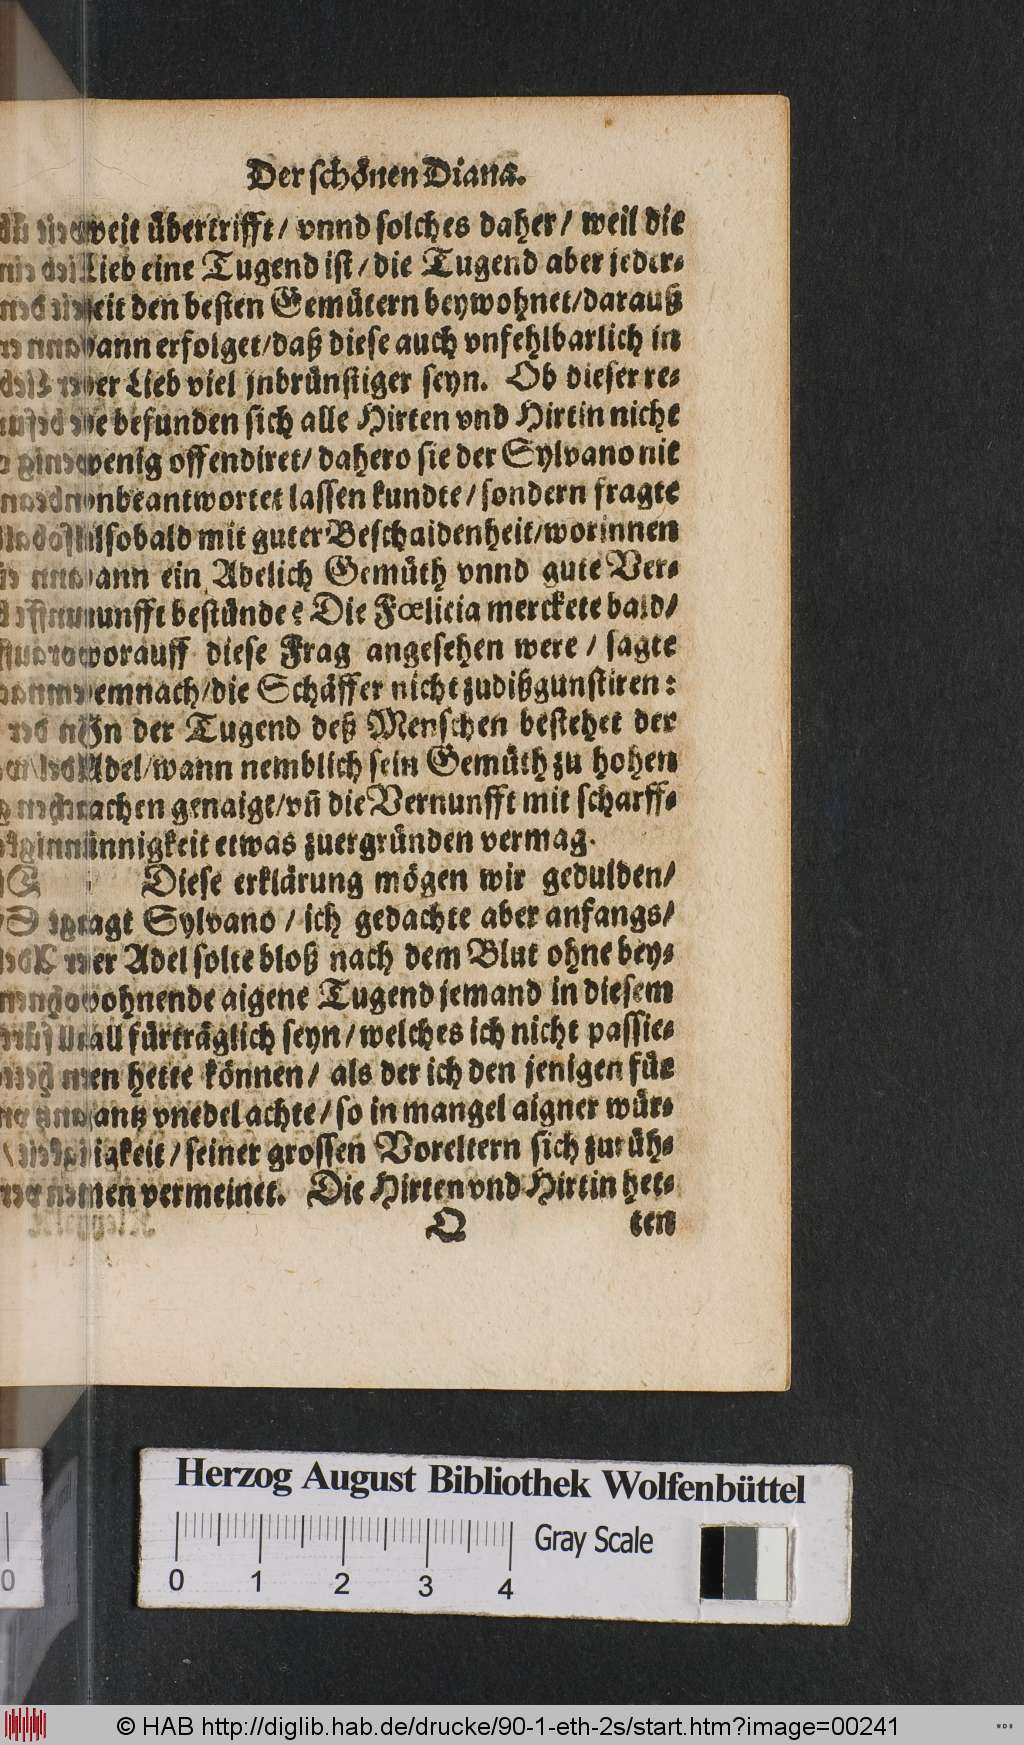 Der schönen Diana.
weit übertrifft / vnnd solches daher / weil die
Lieb eine Tugend ist / die Tugend aber jeder-
zeit den besten Gemütern beywohnet / darauß
dann erfolget / daß diese auch vnfehlbarlich in
der Lieb viel jnbrünstiger seyn. Ob dieser re-
de befunden sich alle Hirten vnd Hirtin nicht
wenig offendiret / dahero sie der Sylvano nit
vnbeantwortet lassen kundte / sondern fragte
alsobald mit guter Beschaidenheit / worinnen
dann ein Adelich Gemüth vnnd gute Ver-
nunfft bestünde? Die Fœlicia merckete bald /
worauff diese Frag angesehen were / sagte
demnach / die Schäffer nicht zudißgunstiren:
In der Tugend deß Menschen bestehet der
Adel / wann nemblich sein Gemüth zu hohen
sachen genaigt / vñ die Vernunfft mit scharff-
sinnigkeit etwas zuergründen vermag.
Diese erklärung mögen wir gedulden /
sagt Sylvano / ich gedachte aber anfangs /
der Adel solte bloß nach dem Blut ohne bey-
wohnende aigene Tugend jemand in diesem
fall fürträglich seyn / welches ich nicht passie-
ren hette können / als der ich den jenigen für
gantz vnedel achte / so in mangel aigner wür-
digkeit / seiner grossen Voreltern sich zurüh-
men vermeinet. Die Hirten vnd Hirtin het-
Q ten
Herzog August Bibliothek Wolfenbüttel
Gray Scale
0 1 2 3 4
© HAB http://diglib.hab.de/drucke/90-1-eth-2s/start.htm?image=00241